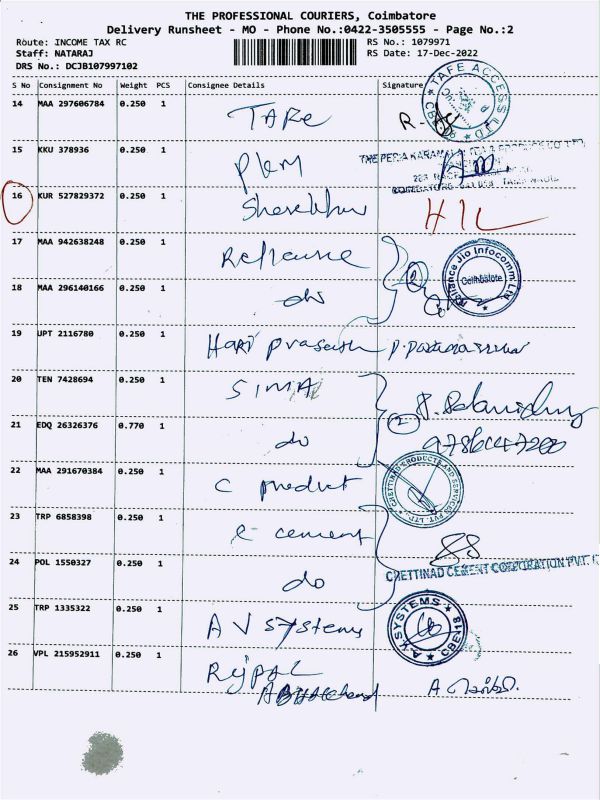 THE PROFESSIONAL COURIERS, Coimbatore
Delivery Runsheet - MO - Phone No.:0422-3505555 - Page No.:2
Route: INCOME TAX RC RS No.: 1079971
Staff: NATARAJ RS Date: 17-Dec-2022
DRS No.: DCJB107997102
S No Consignment No Weight PCS Consignee Details Signature
TAFE ACCESS LTD
14 MAA 297606784 0.250 1 TAFE
15 KKU 378936 0.250 1 PKM
16 KUR 527829372 0.250 1
17 MAA 942638248 0.250 1 Reliance
Reliance Jio Infocomm Ltd
Coimbatore
18 MAA 296140166 0.250 1 do
2
19 UPT 2116780 0.250 1 Hari prasath
20 TEN 7428694 0.250 1 SIMA
21 EDQ 26326376 0.770 1 do
2
22 MAA 291670384 0.250 1 C product
CHETTINAD PRODUCTS AND SERVICES PVT. LTD.
23 TRP 6858398 0.250 1 C cement
24 POL 1550327 0.250 1 do
CHETTINAD CEMENT CORPORATION PVT.
25 TRP 1335322 0.250 1 A V systems
SYSTEMS
26 VPL 215952911 0.250 1